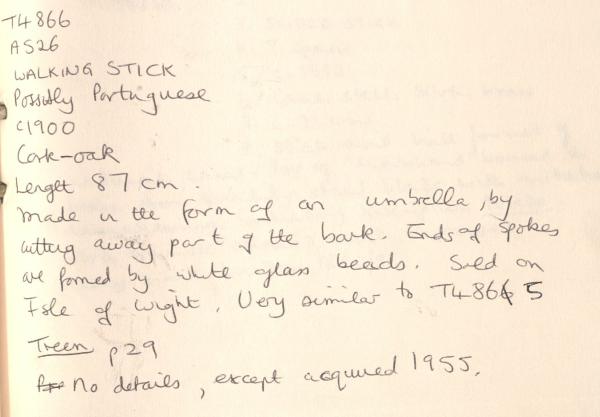 T4866
AS26
WALKING STICK
Possibly Portuguese
c1900
Cork-oak
Lenght 87 cm.
Made in the form of an umbrella, by
cutting away part of the bark. Ends of spokes
are formed by white glass beads. Sold on
Isle of Wight. Very similar to T4865
Treen p29
No details, except acquired 1955.